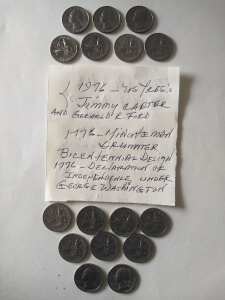 1976 - US Pres's
Jimmy Carter
AND GERALD R FORD
1776 - Minuteman
Drummer
Bicentennial Design
1776 - Declaration of
Independence, under
George Washington